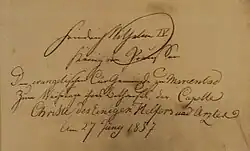 Friedrich Wilhelm IV
König von Preußen
Der evangelischen Kur Gemeinde zu Marienbad
Zum
der Capelle
Christi des Einigen Helfers und Arztes
27 Juny 1857